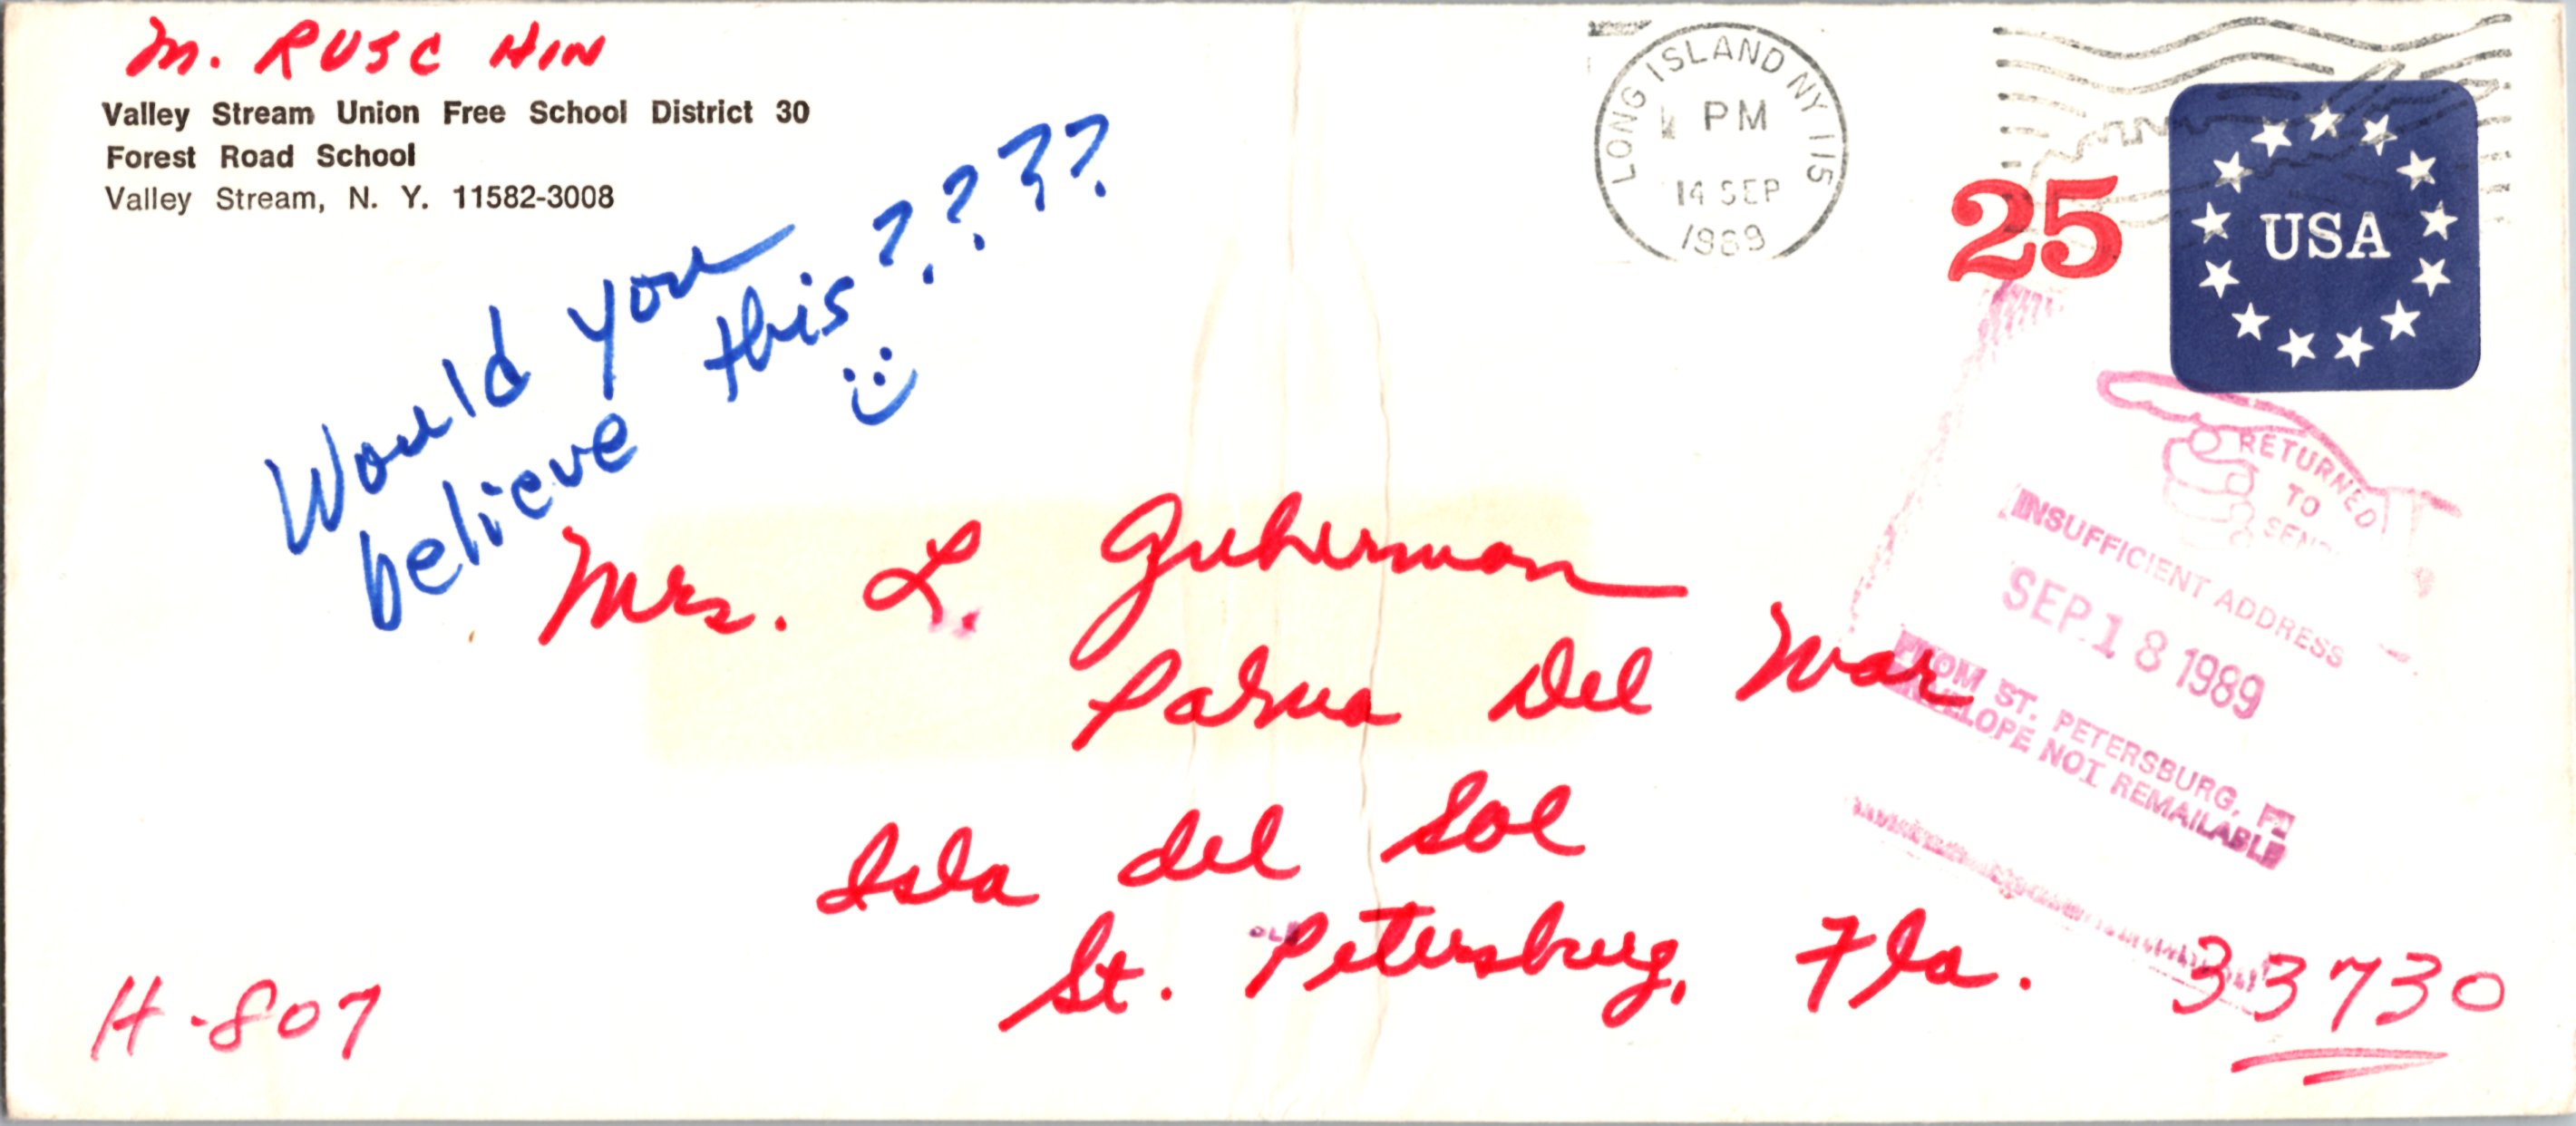 M. RUSCHIN
Valley Stream Union Free School District 30
Forest Road School
Valley Stream, N. Y. 11582-3008
Would you
believe this????
LONG ISLAND NY 115
PM
14 SEP
1989
25
USA
RETURNED
TO
SEND
INSUFFICIENT ADDRESS
SEP 18 1989
FROM ST. PETERSBURG, FL
ENVELOPE NOT REMAILABLE
Mrs. L. Guberman
Palma Del Mar
Isla del Sol
St. Petersburg, Fla. 33730
H-807